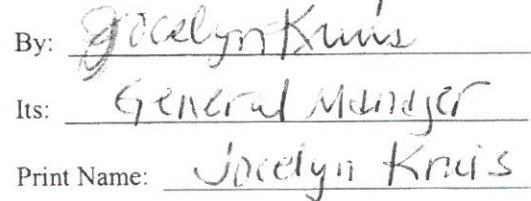 By: Jocelyn Kruis
Its: General Manager
Print Name: Jocelyn Kruis